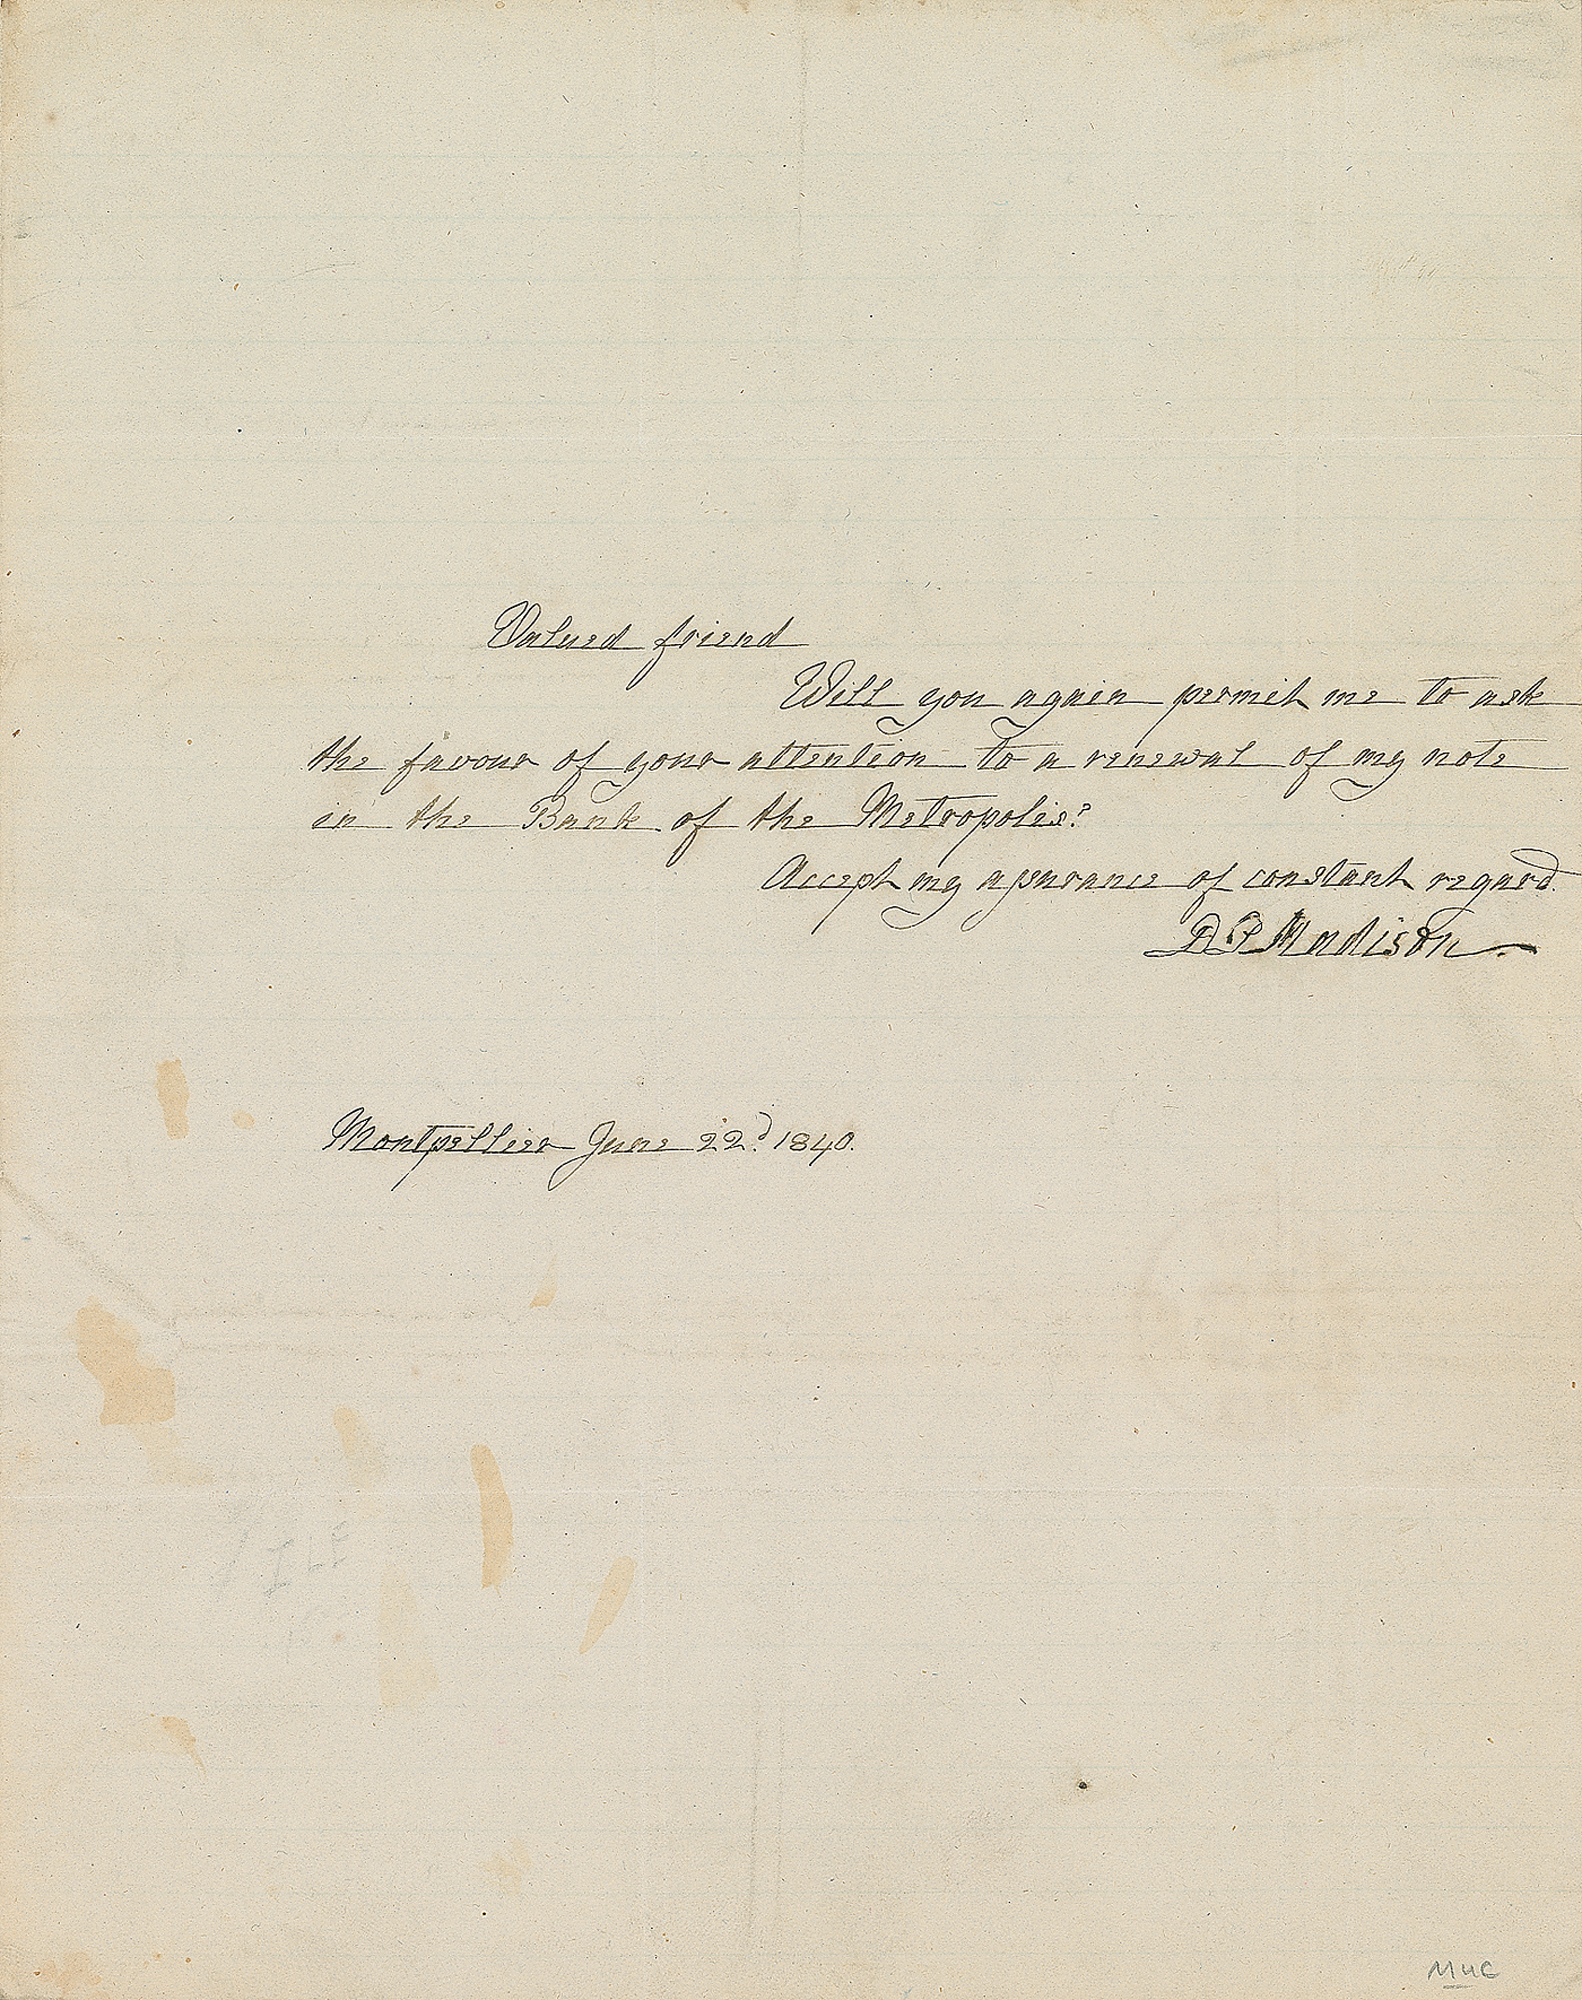 Valued friend
Will you again permit me to ask
the favour of your attention to a renewal of my note
in the Bank of the Metropolis?
Accept my assurance of constant regard.
D. P. Madison.
Montpellier June 22d. 1840.
MUC